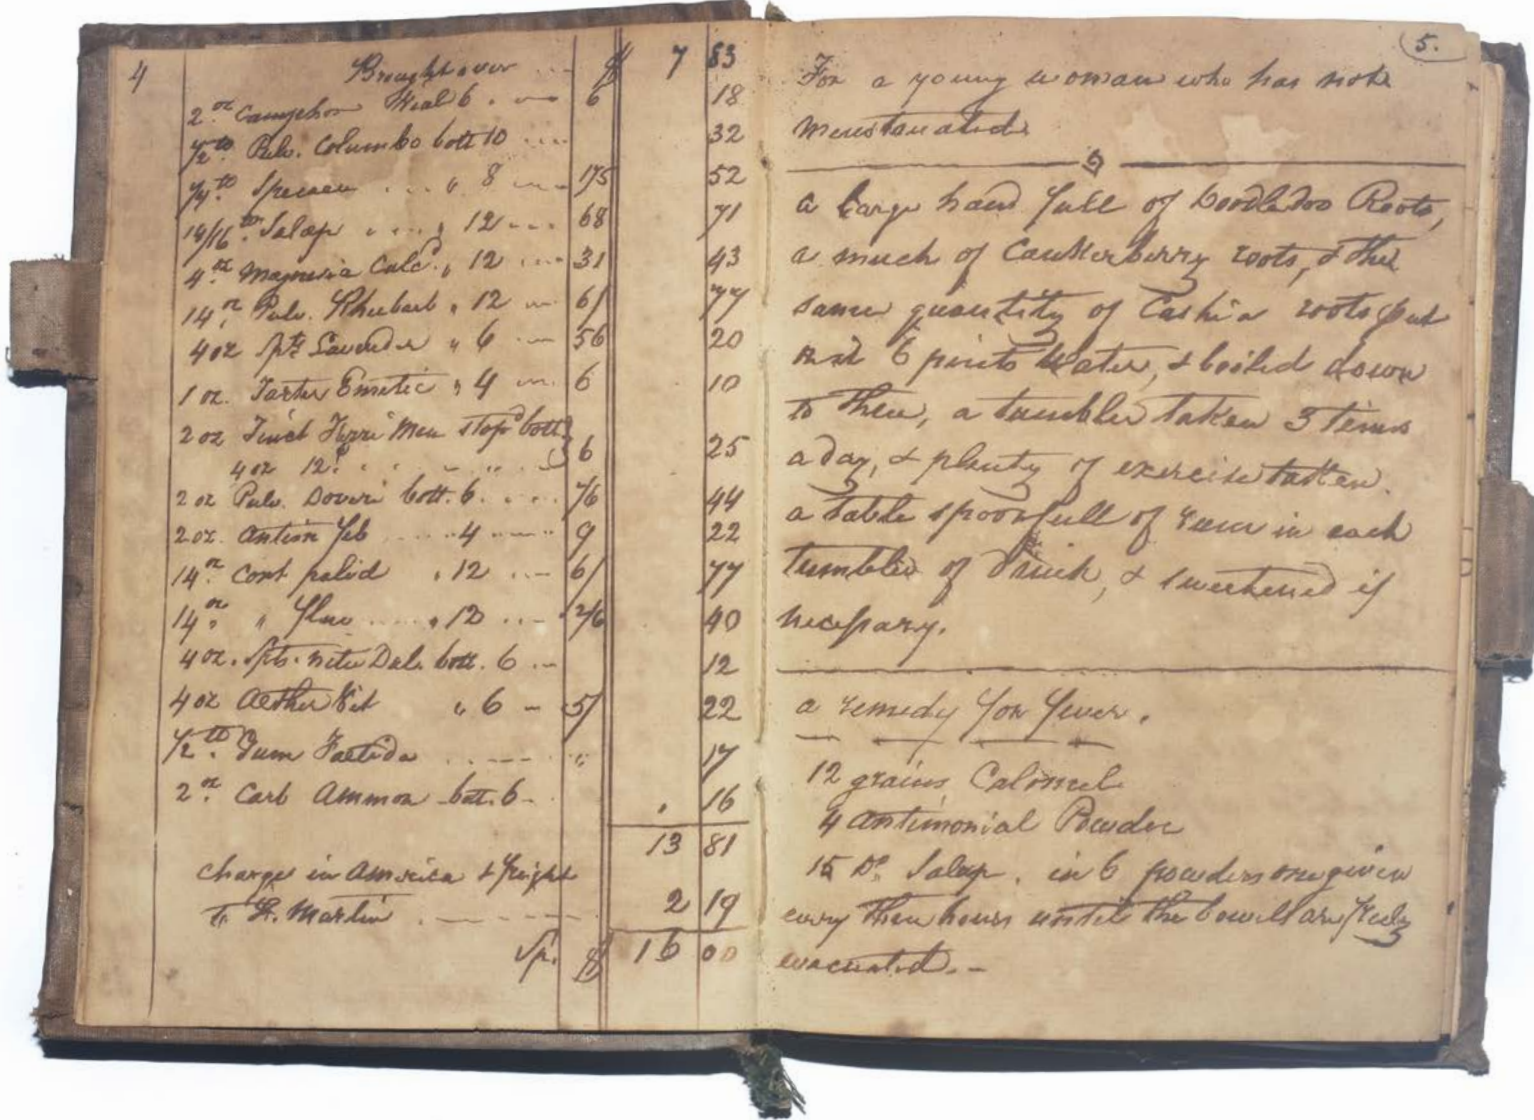 4
Brought over ... $ 7 83
2 oz Camphor Vial 6 . — 6 18
1/2 lb. Pulv. Columbo bott 10 .... 32
1/4 lb Specacu ... " 8 — 175 52
14/16 lb. Jalap . . . " 12 --- 68 71
4 oz Magnesia Calcd. " 12 ... 31 43
14 oz Pulv. Rhubarb " 12 — 6/ 77
4 oz Spts Lavender " 6 .. — 56 20
1 oz. Tarter Emetic " 4 — 6 10
2 oz Tinct Ferri Mur stopd bott
4 oz 12d. . . . . . 6 25
2 oz Pulv. Doveri bott. 6 . . . . 7/6 44
2 oz. Antim Feb ..... 4 ..... 9 22
14 oz Cort palid " 12 ... 6/ 77
14 oz " flav ..... " 12 ... 2/6 40
4 oz. Spts. nitre Dul. bott. 6 .. — 12
4 oz Aether Vit " 6 — 5/ 22
1/2 lb. Gum Foetida ...... " 17
2 oz. Carb Ammon bott. 6 - . 16
13 81
Charges in America & freight
to St. Martin . ------ 2 19
Sp. $ 16 00
5.
For a young woman who has not
menstruated
a large hand full of Doodledoo Roots,
a much of Cankerberry roots, & the
same quantity of Cashia roots put
in 6 pints Water, & boiled down
to three, a tumbler taken 3 times
a day, & plenty of exercise taken.
a table spoonfull of rum in each
tumbler of drink, & sweetened if
necessary.
a remedy for fever.
12 grains Calomel
4 Antimonial Powder
15 Do. Jalap. in 6 powders one given
every three hours until the bowels are freely
evacuated. -